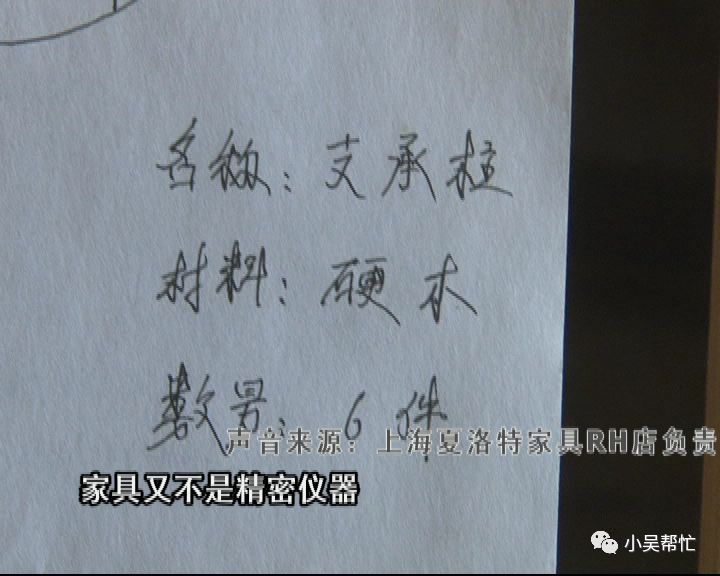 名称：支承柱
材料：硬木
数量：6件
声音来源：上海夏洛特家具RH店负责
家具又不是精密仪器
小吴帮忙